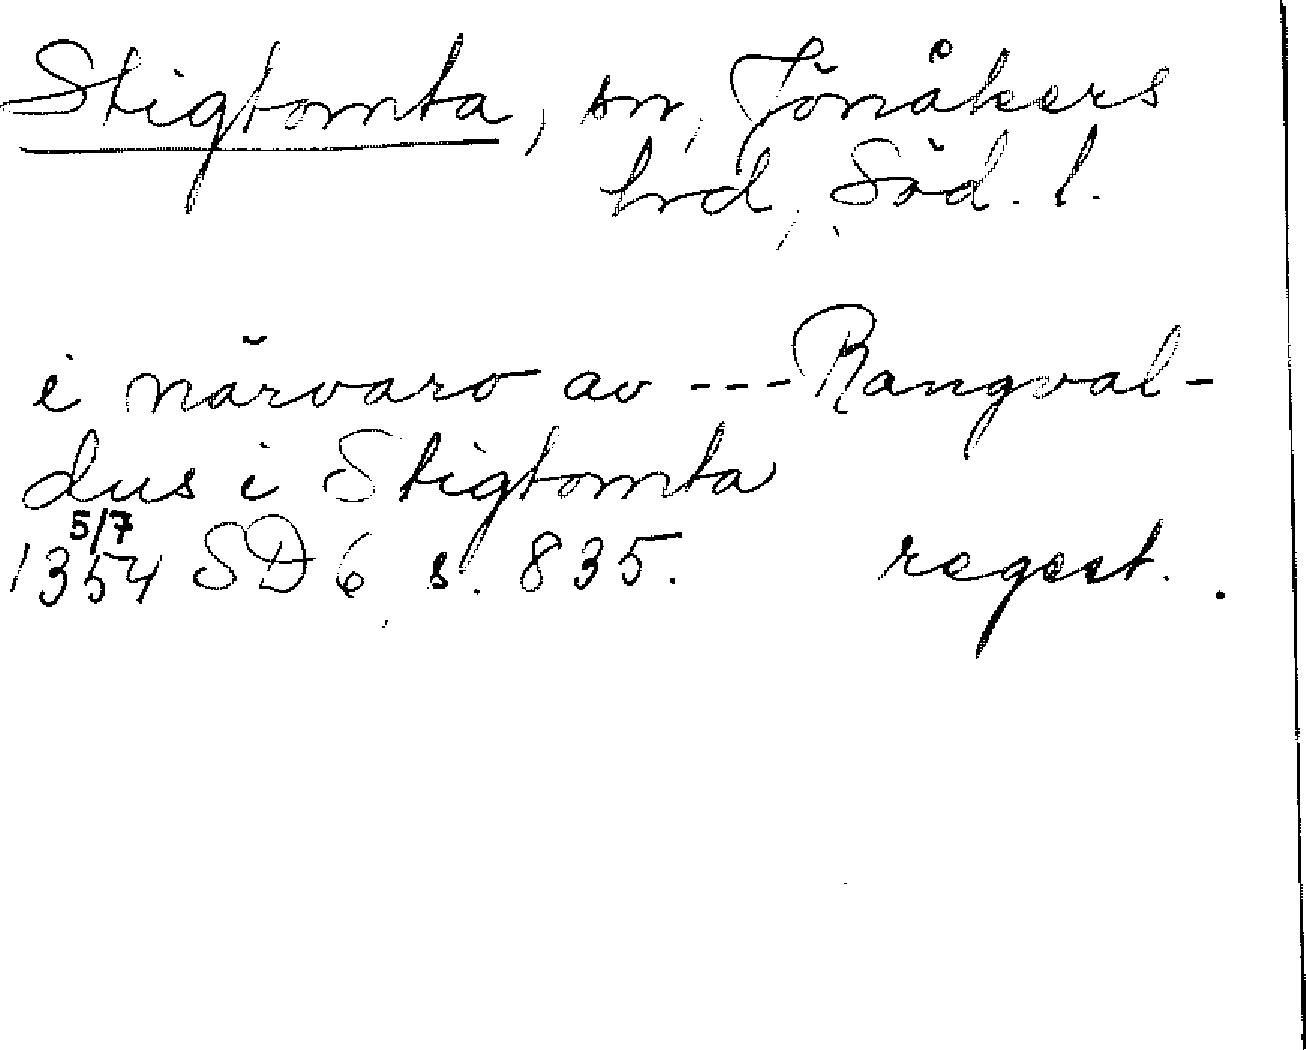 Stigtomta, sn, Jönåkers
hrd, Söd. l.
i närvaro av --- Rangval-
dus i Stigtomta
5/7
1354 SD 6, s. 835. regest.